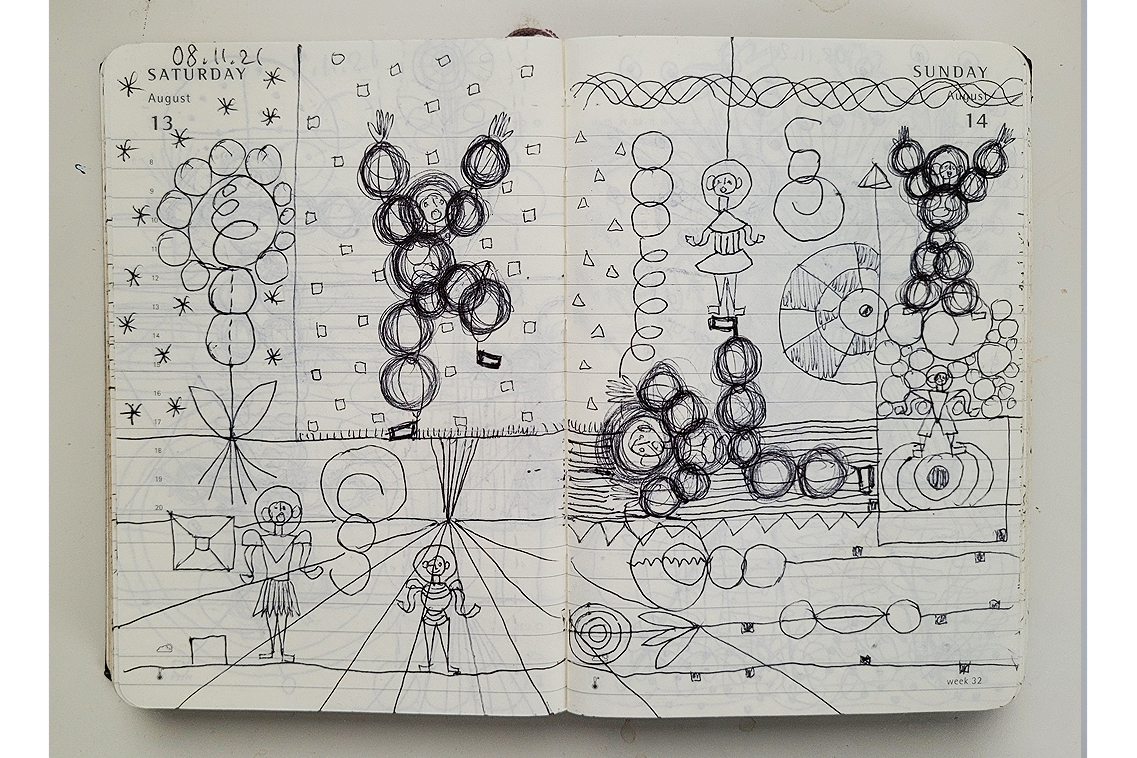 08.11.21
SATURDAY
August
13
8
9
10
11
12
13
14
15
16
17
18
19
20
SUNDAY
August
14
week 32